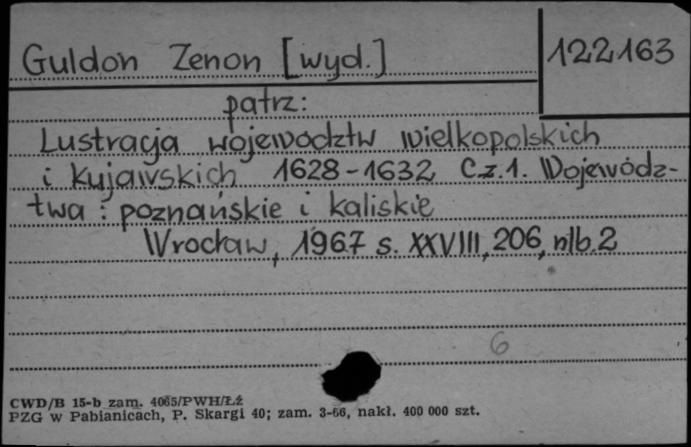 Guldon Zenon [wyd.]
122163
patrz:
Lustracja województw wielkopolskich
i kujawskich 1628-1632 Cz.1. Wojewódz-
twa: poznańskie i kaliskie
Wrocław, 1967 s. XXVIII, 206, nlb. 2
6
CWD/B 15-b zam. 4065/PWH/Łź
PZG w Pabianicach, P. Skargi 40; zam. 3-66, nakł. 400 000 szt.